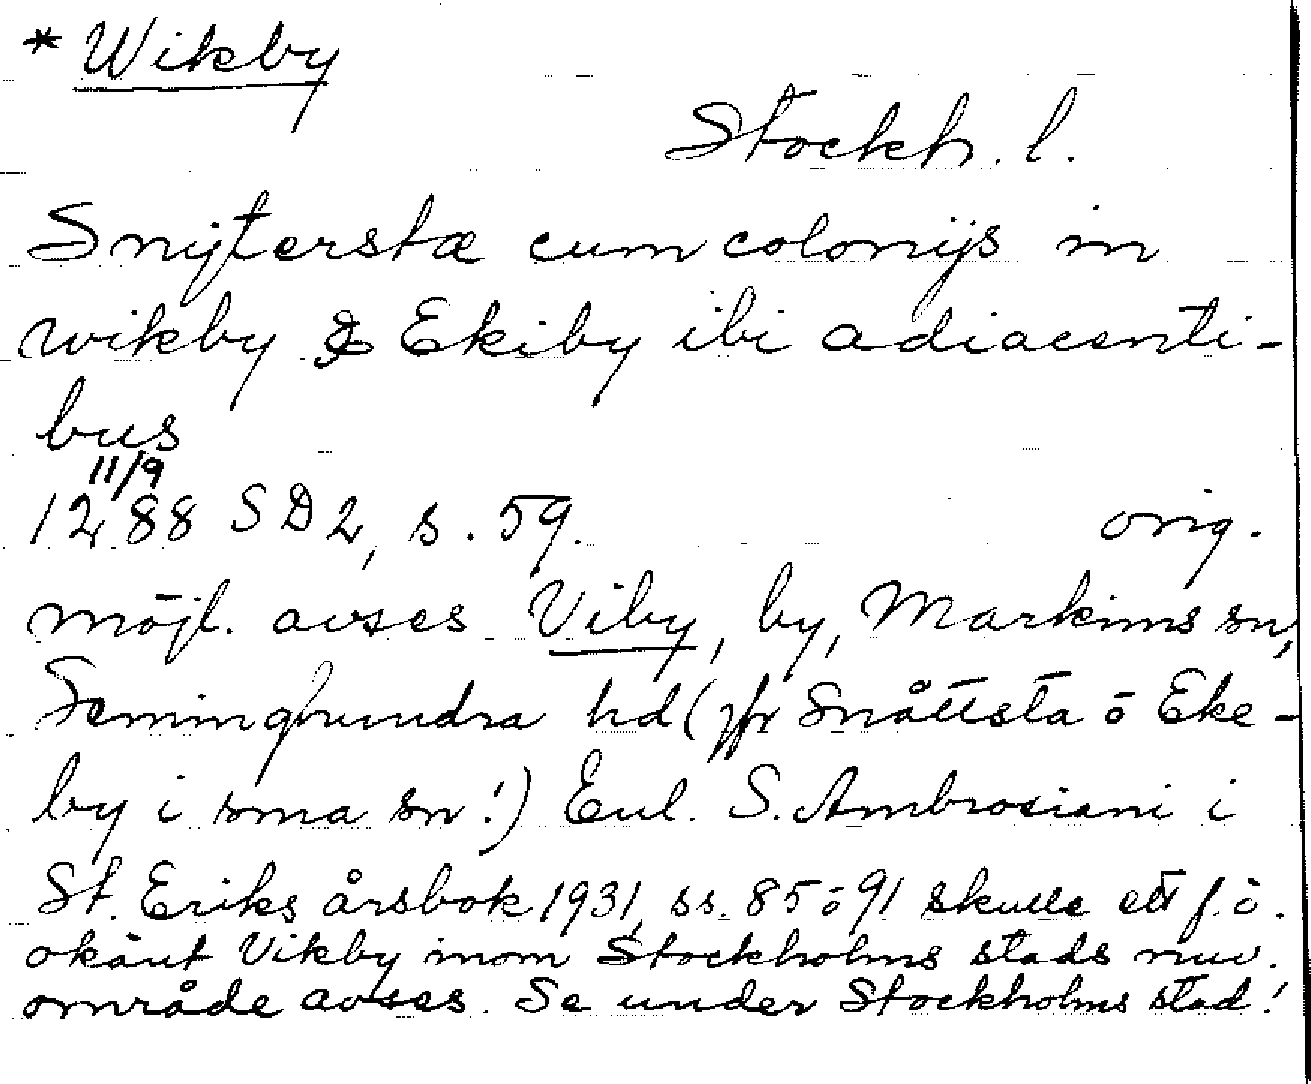 * Wikby
Stockh. l.
Snijterstæ cum colonijs in
wikby & Ekiby ibi adiacenti-
bus
11/9
1288 SD 2, s. 59. orig.
möjl. avses Viby, by, Markims sn,
Seminghundra hd (jfr Snåttsta o Eke-
by i sma sn!) Enl. S. Ambrosiani i
St. Eriks årsbok 1931, ss. 85 o 91 skulle ett f. ö.
okänt Vikby inom Stockholms stads nuv.
område avses. Se under Stockholms stad!